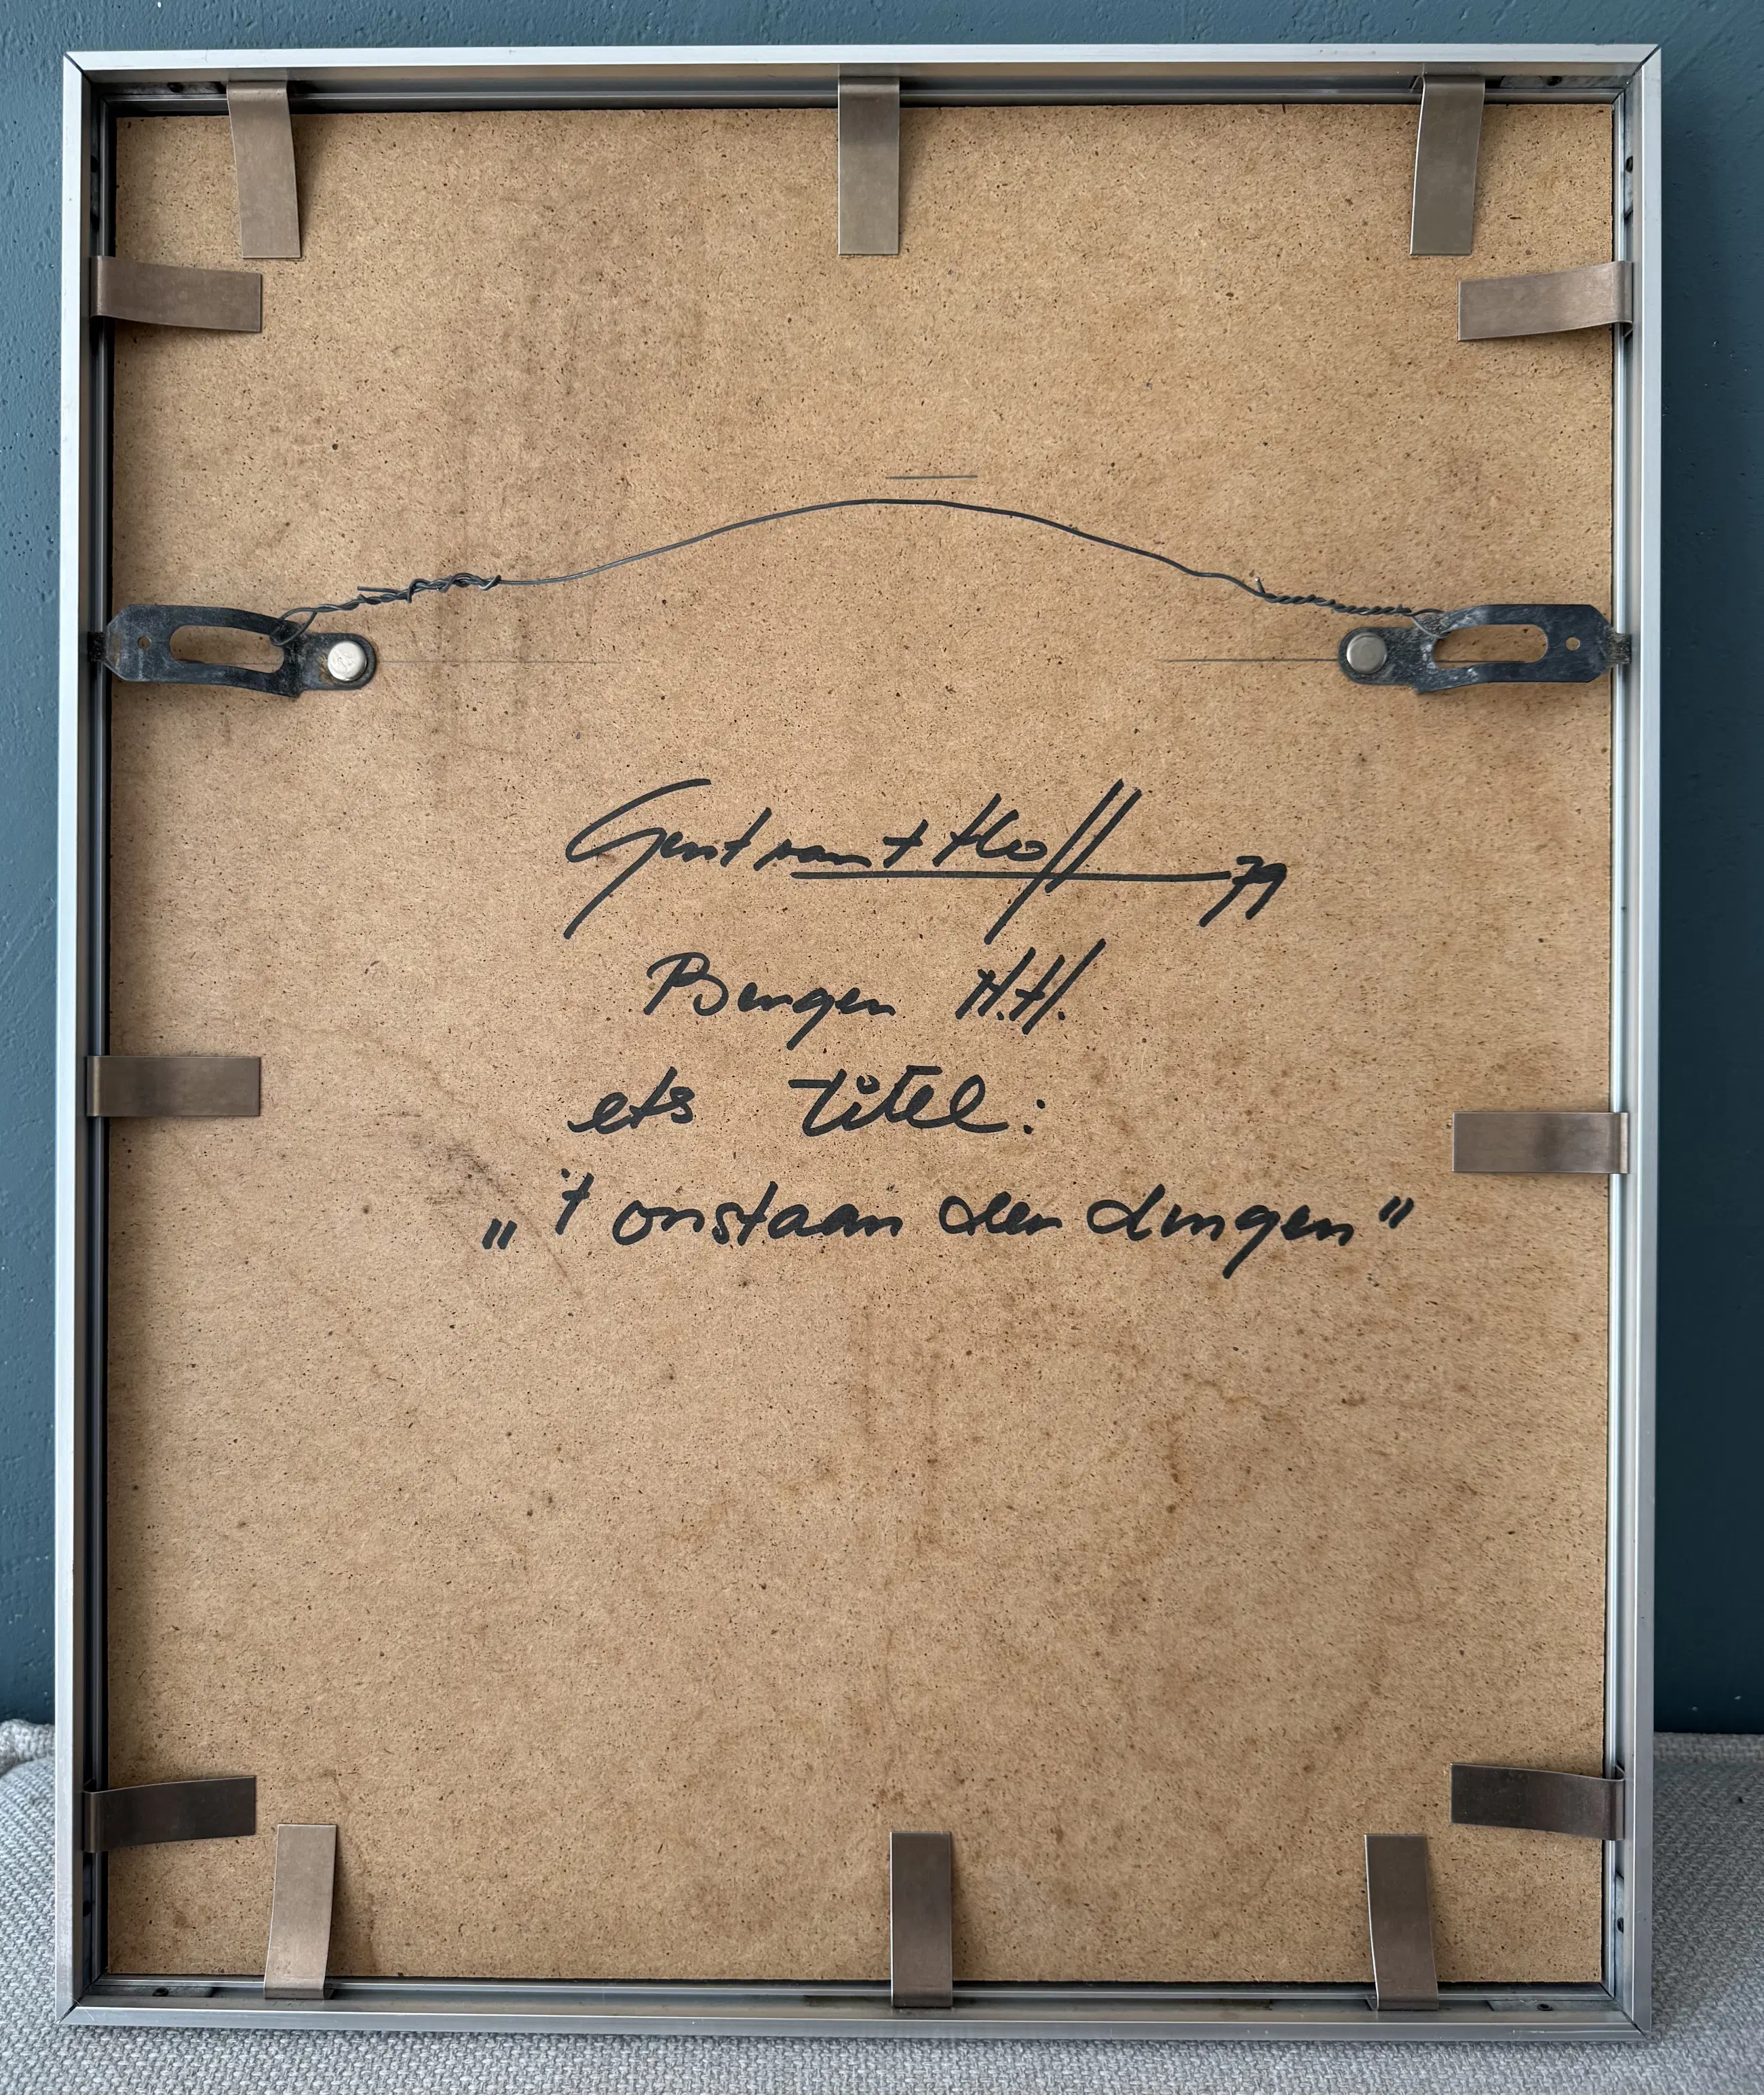 Gerit van 't Hoff 79
Bergen N.H.
ets titel:
„ 't onstaan der dingen ”